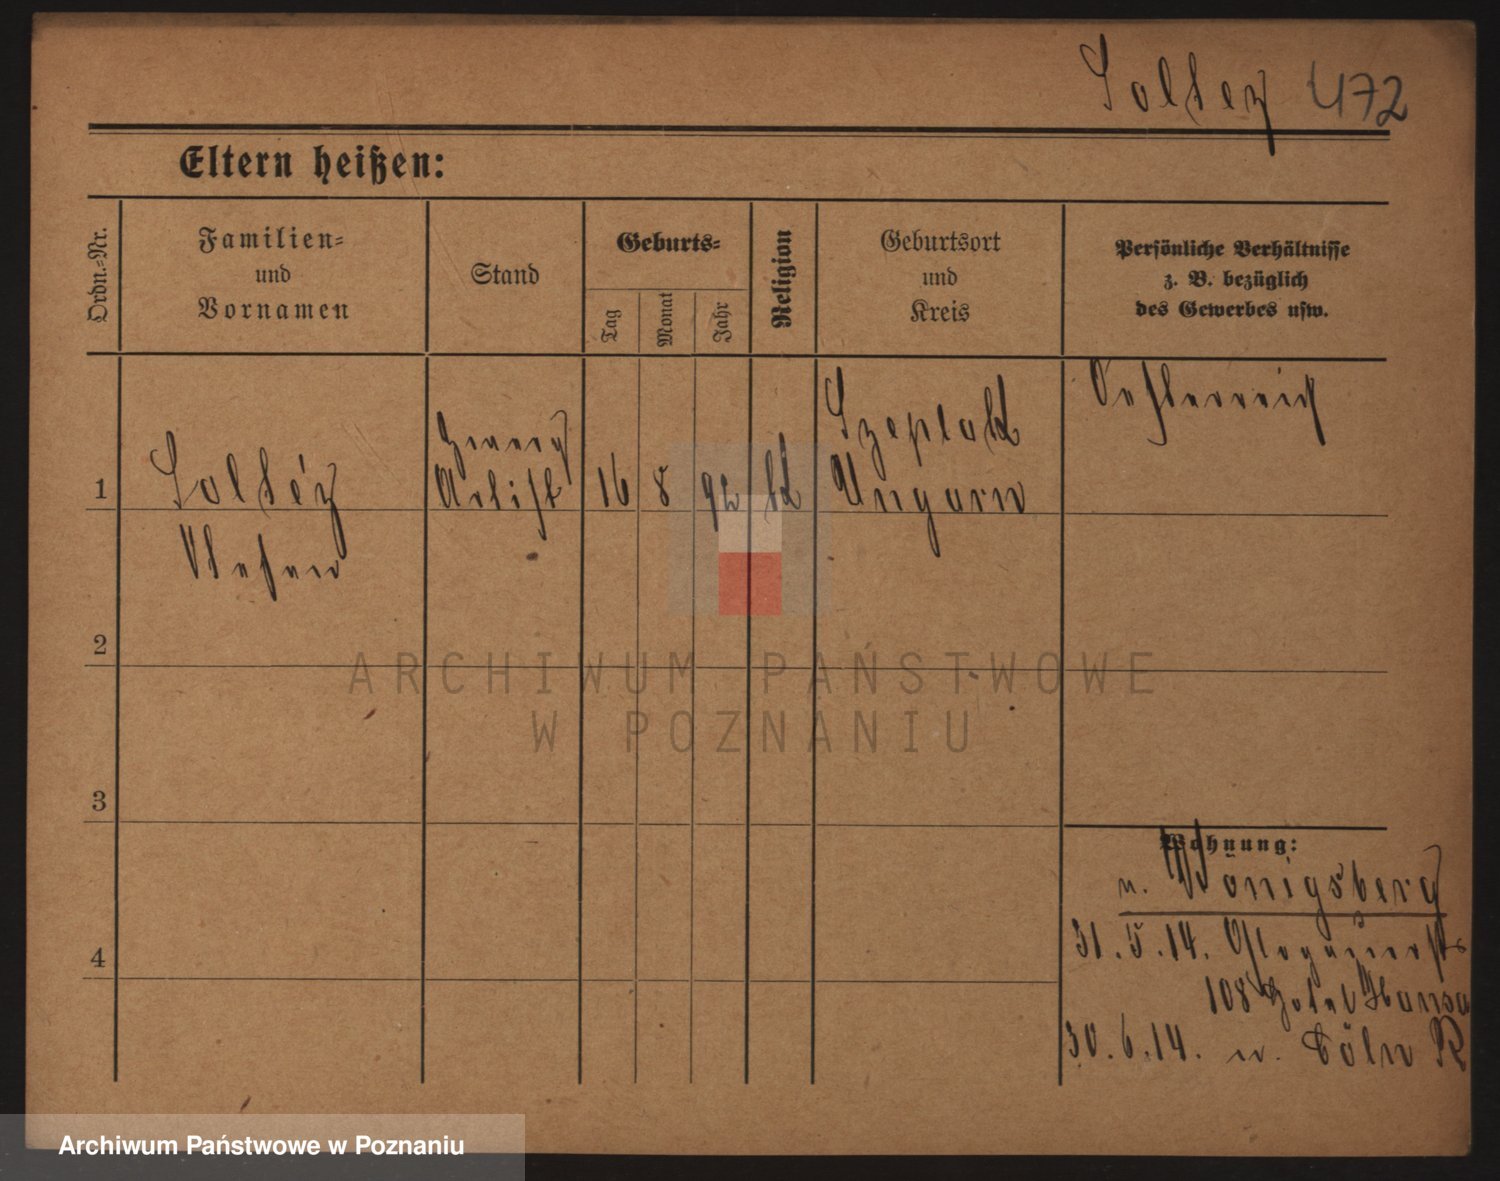 Soltez 472
Eltern heißen:
Ordn.-Nr.
Familien-
und
Vornamen
Stand
Geburts-
Tag
Monat
Jahr
Religion
Geburtsort
und
Kreis
Persönliche Verhältnisse
z. B. bezüglich
des Gewerbes usw.
1
Soltéz
Zwerg
Artist
16 8 92
Szeplak
Ungarn
Oesterreich
2
3
4
Wohnung:
n. Königsberg
31. 5. 14. Glogauerstr
108 Hotel Hansa
30. 6. 14. n. Cöln R
ARCHIWUM PAŃSTWOWE
W POZNANIU
Archiwum Państwowe w Poznaniu